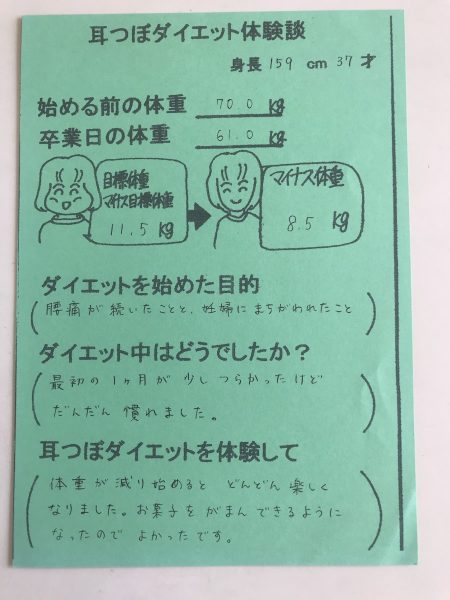 耳つぼダイエット体験談
身長 159 cm 37 才
始める前の体重 70.0 Kg
卒業日の体重 61.0 Kg
目標体重
マイナス目標体重
11.5 Kg
マイナス体重
8.5 Kg
ダイエットを始めた目的
腰痛が続いたことと、妊婦にまちがわれたこと
ダイエット中はどうでしたか?
最初の1ヶ月が少しつらかったけど
だんだん慣れました。
耳つぼダイエットを体験して
体重が減り始めるとどんどん楽しく
なりました。お菓子をがまんできるように
なったのでよかったです。